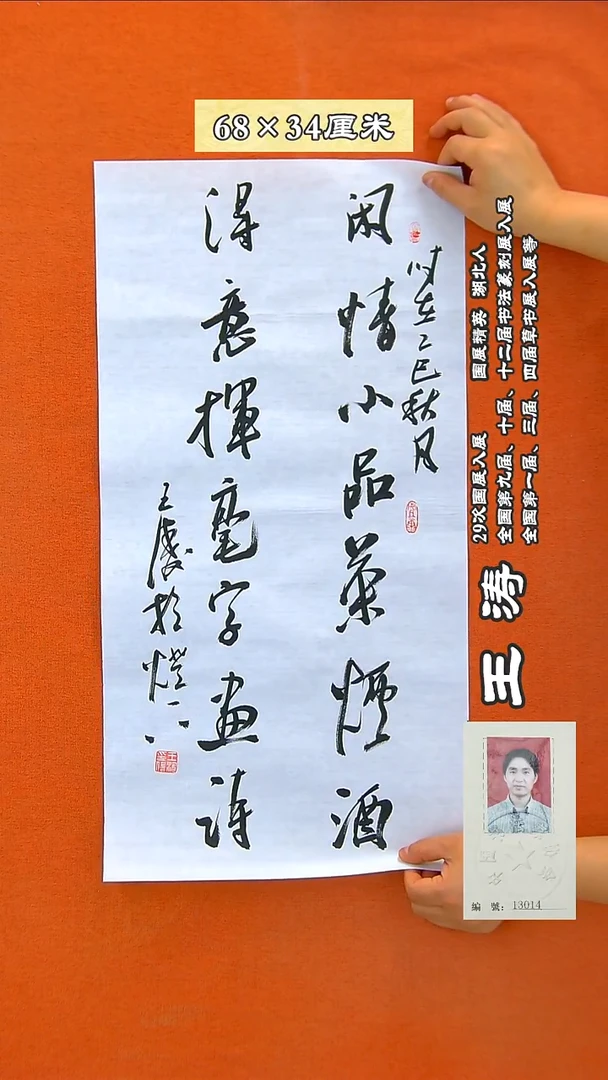 68×34厘米
闲情小品茶煙酒
得意揮毫字画诗
时在乙巳秋月
王涛於燈下
29次国展入展 国展精英 湖北人
全国第九届、十届、十二届书法篆刻展入展
全国第一届、三届、四届草书展入展等
王涛
編號:13014